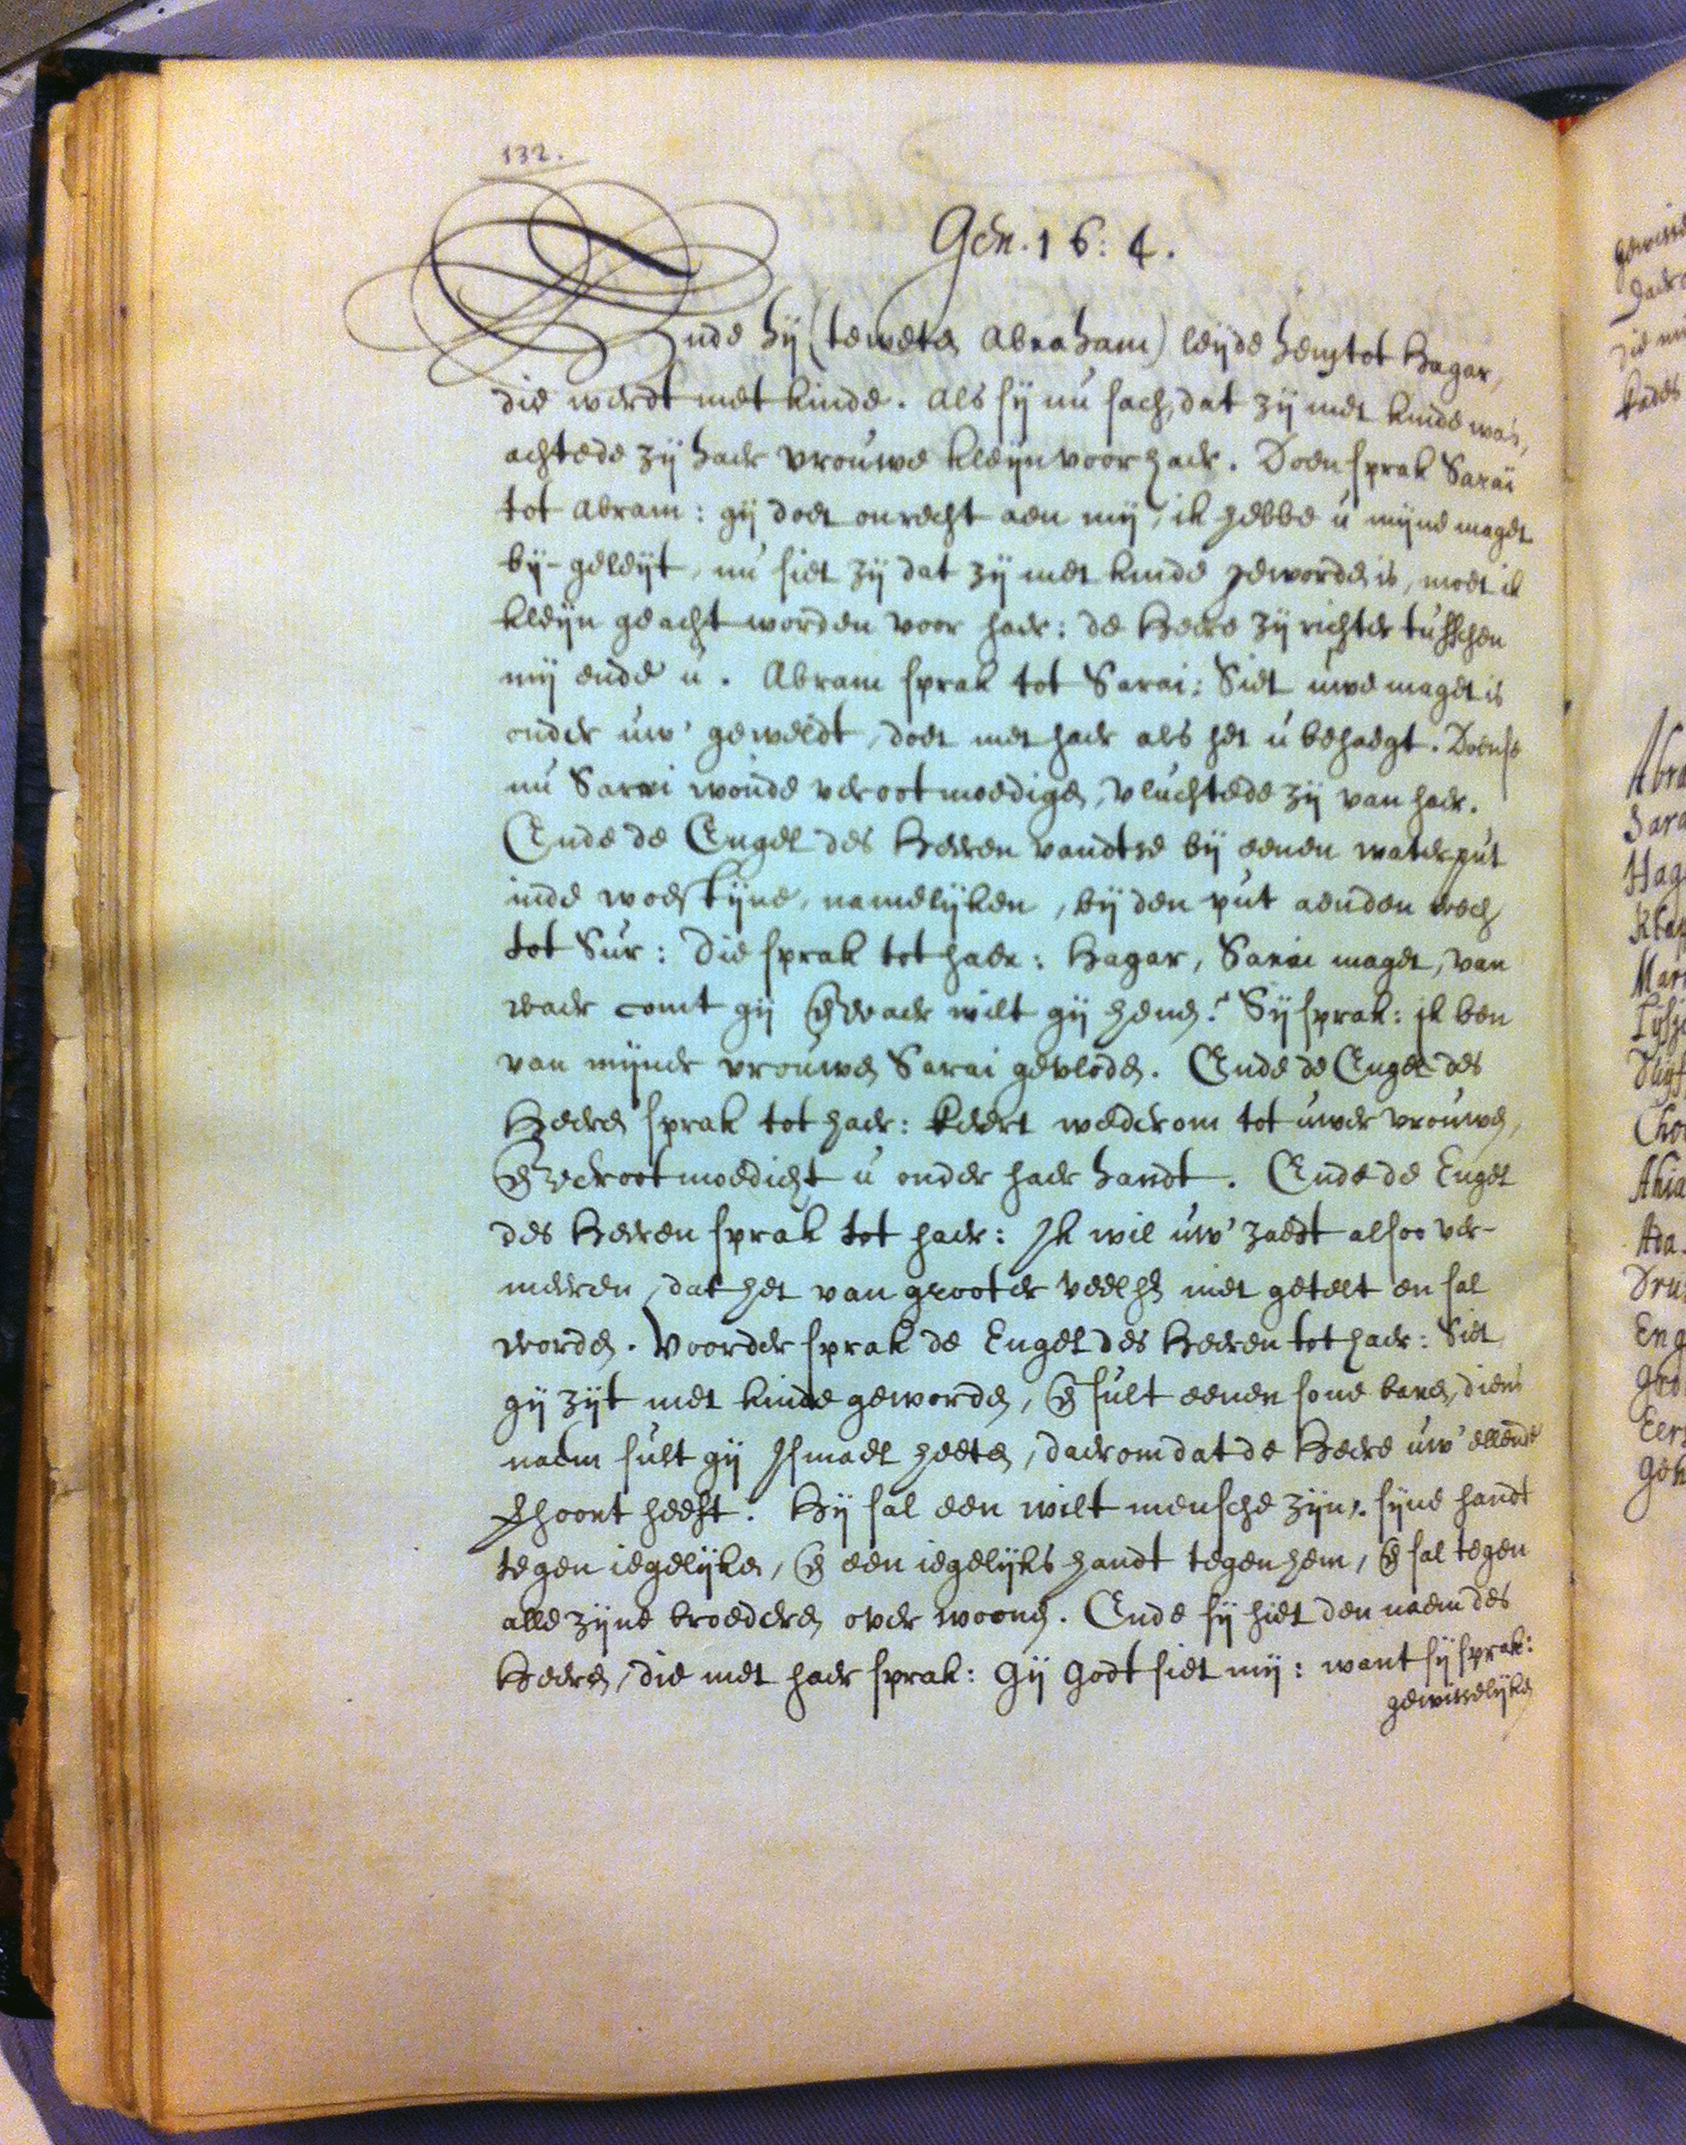 132.
Gen. 16: 4.
Ende hij (te weten Abraham) leijde hem tot Hagar,
die werdt met kinde. Als sij nu sach, dat zij met kinde was,
achtede zij haer vrouwe kleijn voor haer. Doen sprak Sarai
tot Abram: gij doet onrecht aen mij, ik hebbe u mijne maget
bij-geleijt, nu siet zij dat zij met kinde geworden is, moet ik
kleijn geacht worden voor haer: de Heere zij richter tusschen
mij ende u. Abram sprak tot Sarai: Siet uwe maget is
onder uw' geweldt, doet met haer als het u behaegt. Doense
nu Sarai woude verootmoedigen, vluchtede zij van haer.
Ende de Engel des Heeren vandtse bij eenen waterput
inde woestijne, namelijken, bij den put aenden wech
tot Sur: Die sprak tot haer: Hagar, Sarai maget, van
waer comt gij en waer wilt gij henen? Sij sprak: ik ben
van mijner vrouwen Sarai gevloden. Ende de Engel des
Heeren sprak tot haer: keert wederom tot uwer vrouwen,
en verootmoedicht u onder haer handt. Ende de Engel
des Heeren sprak tot haer: Ik wil uw' zaedt alsoo ver-
meeren, dat het van grooter veelheyt niet getelt en sal
worden. Voorder sprak de Engel des Heeren tot haer: Siet
gij zijt met kinde geworden, en sult eenen sone baren, diens
naem sult gij Ismael heeten, daerom dat de Heere uw' ellende
gehoort heeft. Hij sal een wilt mensche zijn, sijne handt
tegen iegelijken, en een iegelijks handt tegen hem, en sal tegen
alle zijne broederen over woonen. Ende sij hiet den naem des
Heeren, die met haer sprak: Gij Godt siet mij: want sij sprak:
gewisselijken
Abra
Sara
Hag
Mar
Cho
Ahia
Ada
Dru
Eng
Eers
Geh